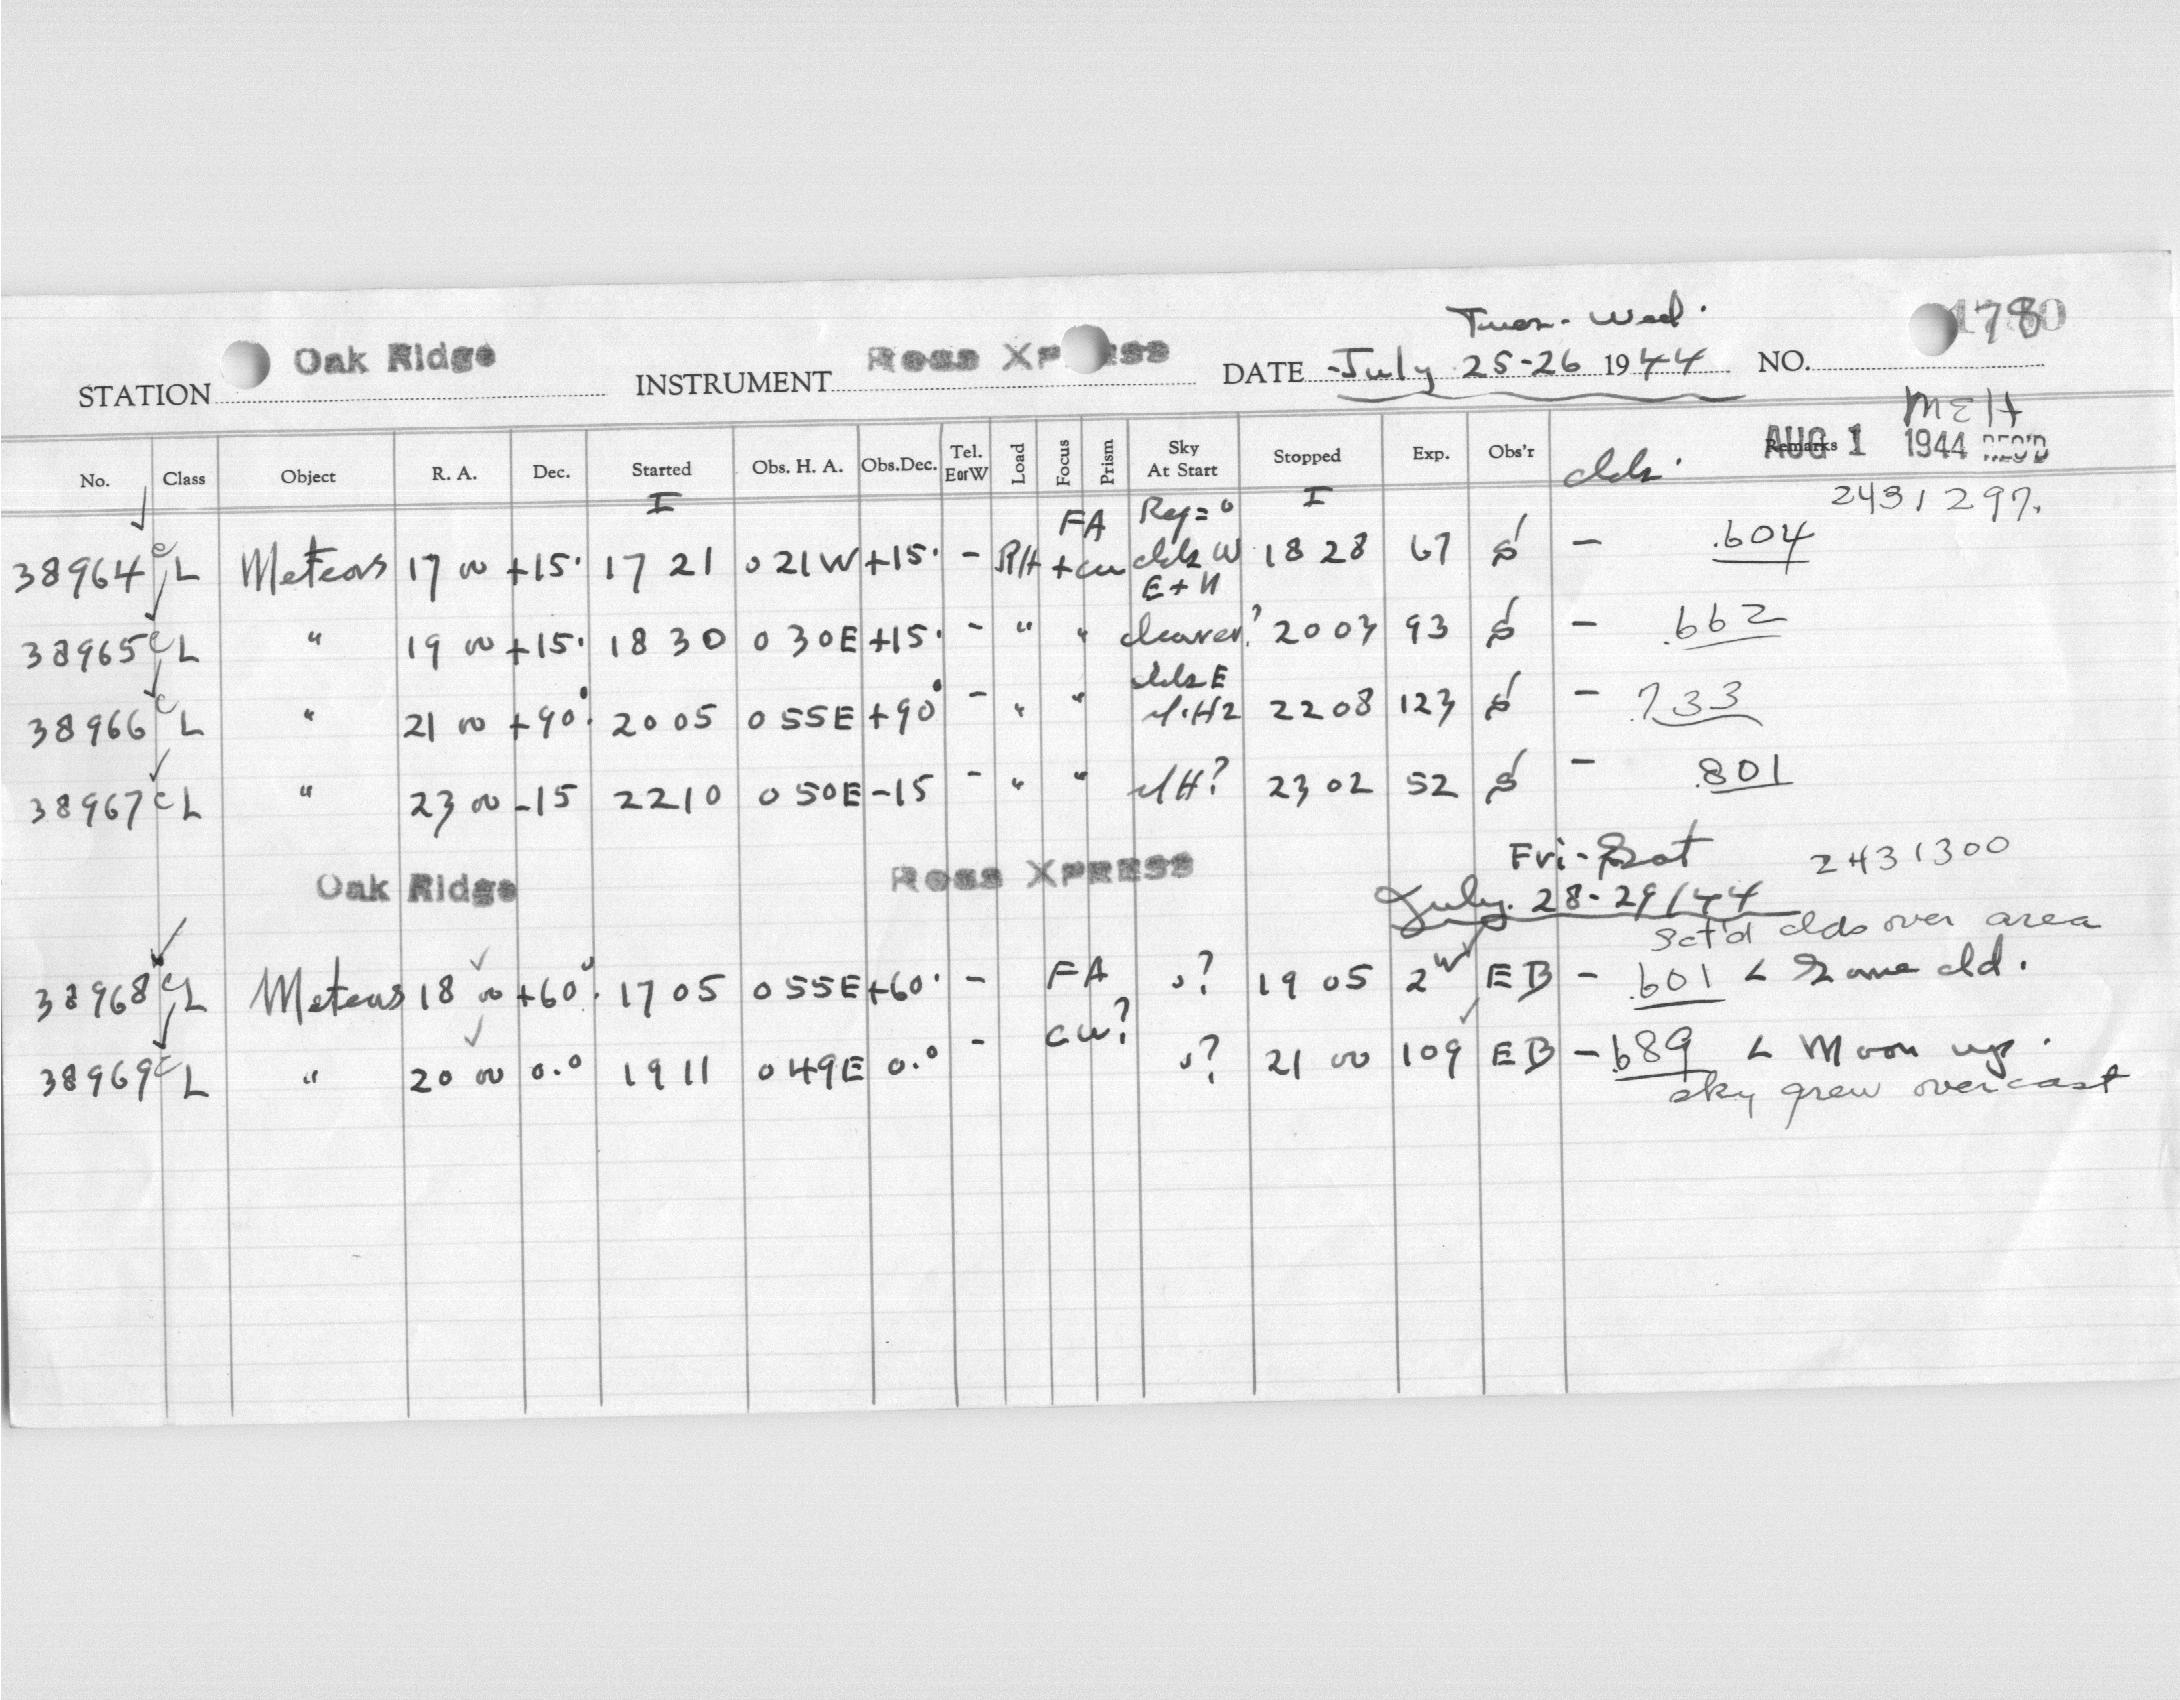 Tues - Wed.
STATION Oak Ridge INSTRUMENT Ross XPRESS DATE July 25-26 1944 NO. 1780
MEH
AUG 1 1944 REC'D
No. Class Object R. A. Dec. Started Obs. H. A. Obs.Dec. Tel. E or W Load Focus Prism Sky At Start Stopped Exp. Obs'r Remarks
I I clds. 2431297.
38964 c L Meteors 17 00 +15° 17 21 0 21W +15° - RH FA + cw clds W E + N 18 28 67 - .604
38965 c L " 19 00 +15° 18 30 0 30E +15° - " " clearer? 20 03 93 - .662
38966 c L " 21 00 +90° 20 05 0 55E +90° - " " clds E 22 08 123 - .733
38967 c L " 23 00 -15 22 10 0 50E -15 - " " 23 02 52 - .801
Oak Ridge Ross XPRESS Fri-Sat 2431300
July. 28-29/44
Sct'd clds over area
38968 c L Meteors 18 00 +60° 17 05 0 55E +60° - FA ? 19 05 2 EB - .601 L Some cld.
38969 c L " 20 00 0.° 19 11 0 49E 0.° - cw? ? 21 00 109 EB - .689 L Moon up.
sky grew overcast